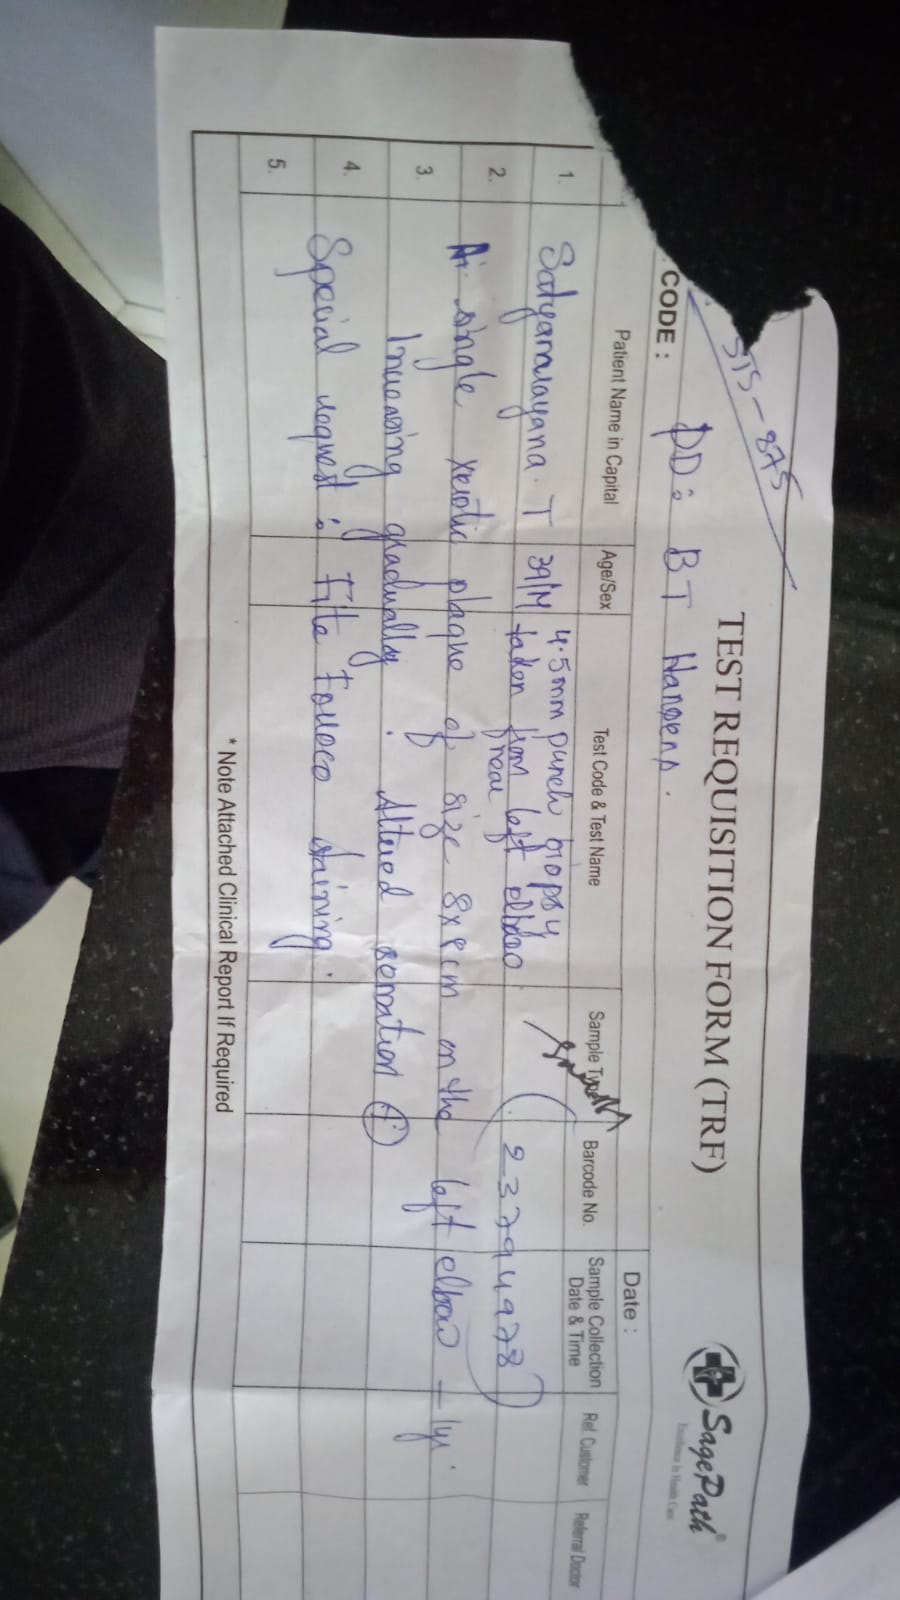 S15-875
TEST REQUISITION FORM (TRF)
SagePath®
Excellence in Health Care
CODE :
DD: BT Hansens.
Date :
Patient Name in Capital Age/Sex Test Code & Test Name Sample Type Barcode No. Sample Collection Date & Time Ref. Customer Referral Doctor
1. Satyanarayana. T 39/M 4.5mm punch biopsy
taken from left elbow
area
2. (23794978)
A: single xerotic plaque of size 8x8cm on the left elbow - 1yr.
3. Increasing gradually. Altered sensation (+)
4. Special request: Fite Faraco staining.
5.
* Note Attached Clinical Report If Required